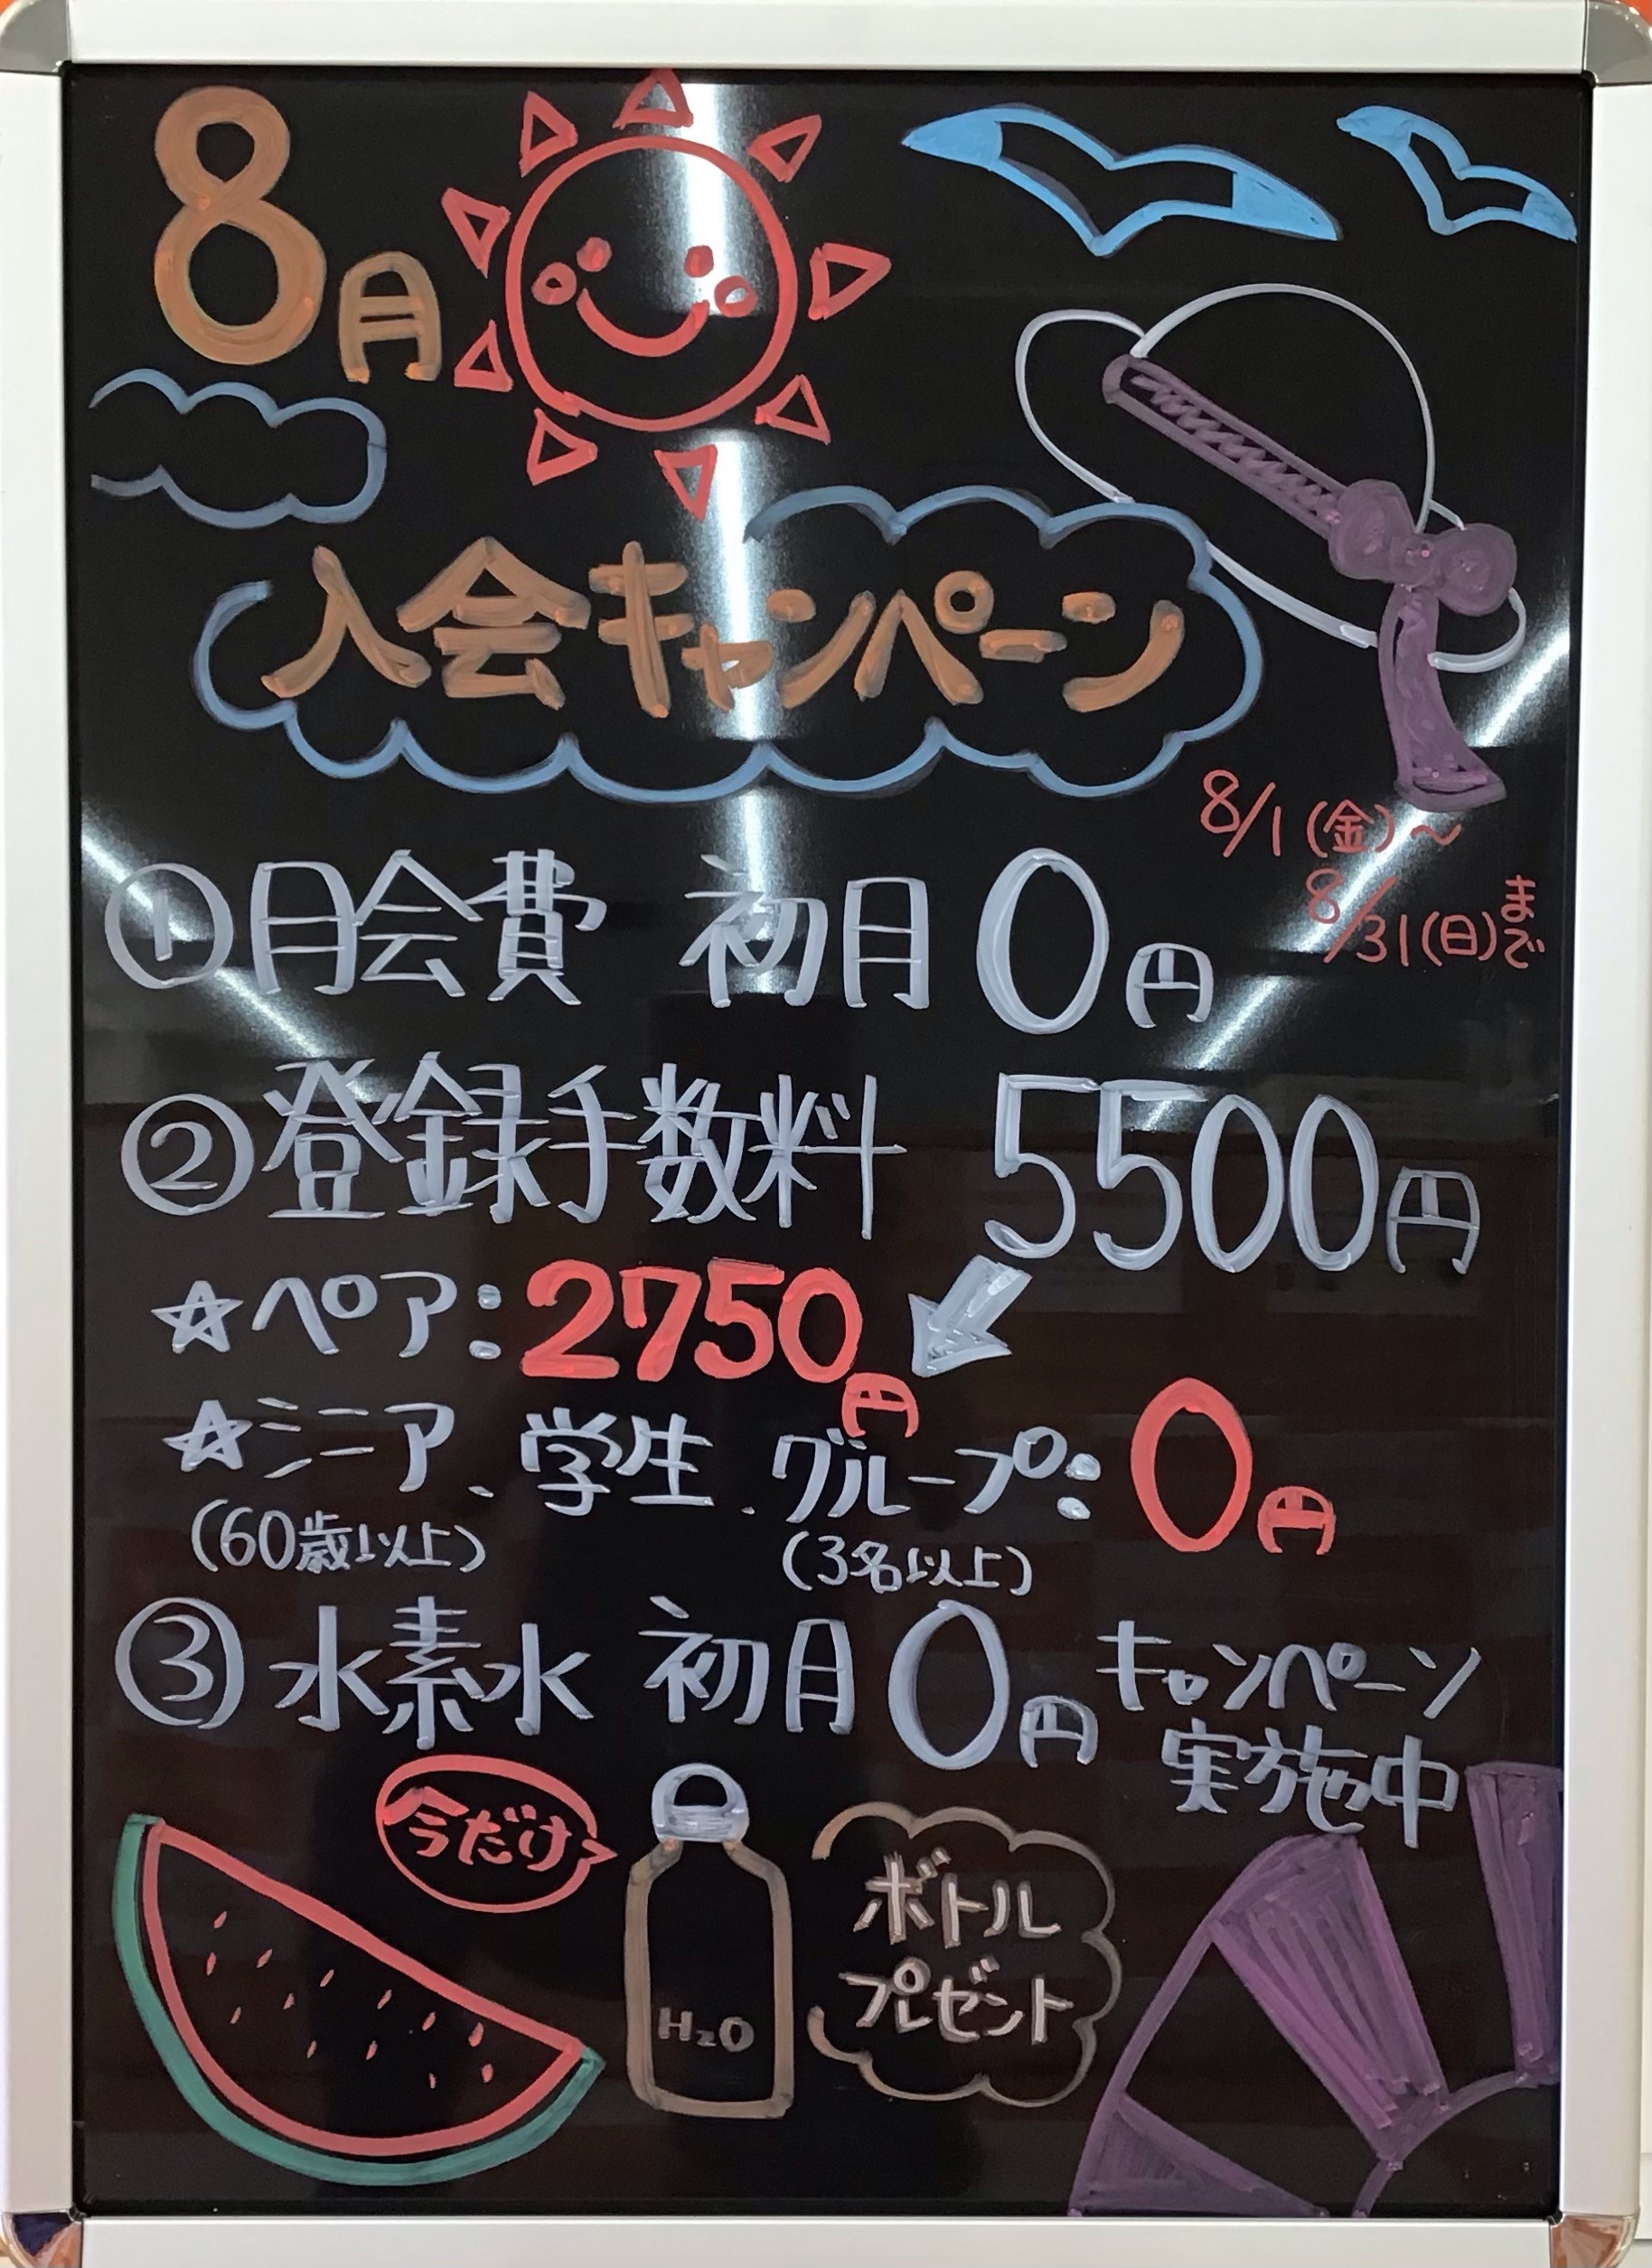 8月
入会キャンペーン
8/1(金)〜
8/31(日)まで
①月会費 初月0円
②登録手数料 5500円
☆ペア:2750円
☆シニア、学生、グループ:0円
(60歳以上) (3名以上)
③水素水 初月0円 キャンペーン
実施中
今だけ
ボトル
プレゼント
H2O